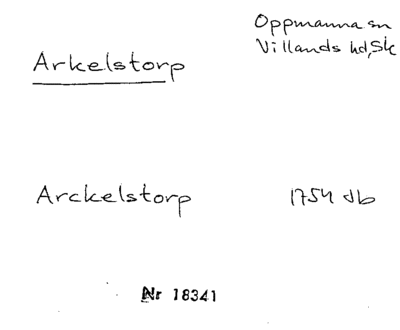 Oppmanna sn
Villands hd, Sk
Arkelstorp
Arckelstorp 1754 db
Nr 18341